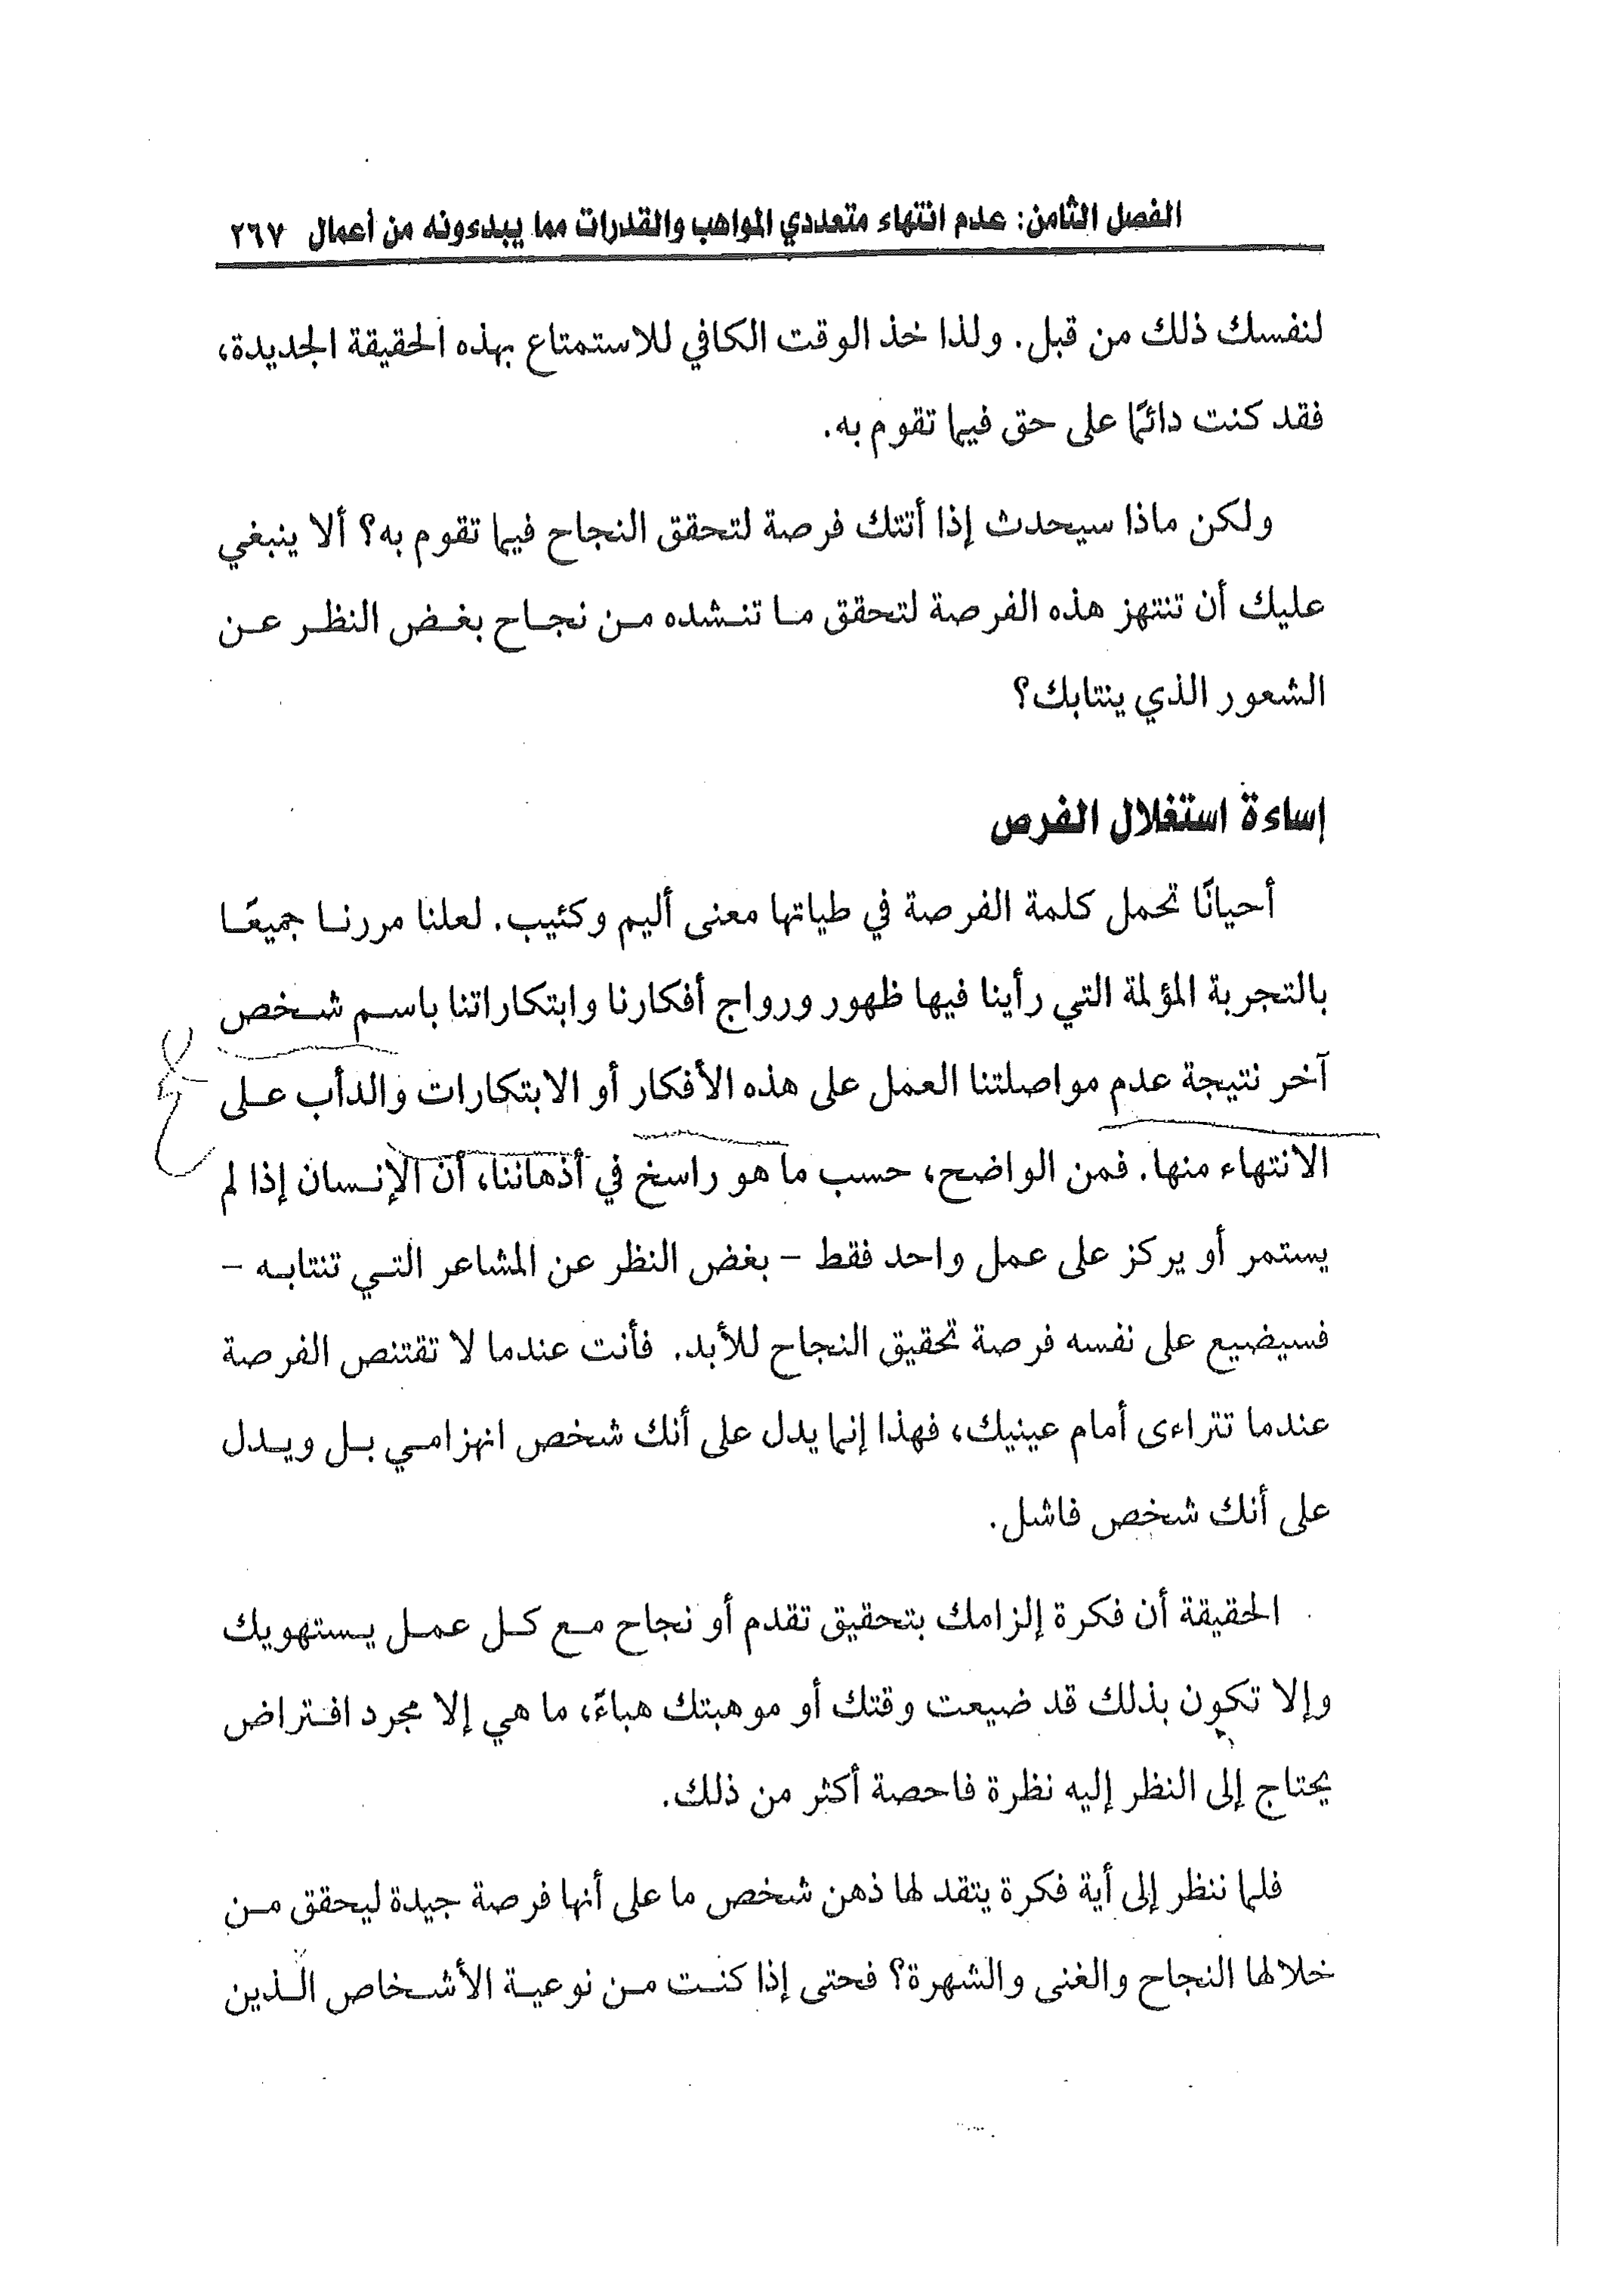 الفصل الثامن: عدم انتهاء متعددي المواهب والقدرات مما يبدءونه من أعمال ٢٦٧
لنفسك ذلك من قبل. ولذا خذ الوقت الكافي للاستمتاع بهذه الحقيقة الجديدة،
فقد كنت دائمًا على حق فيما تقوم به.
ولكن ماذا سيحدث إذا أتتك فرصة لتحقق النجاح فيما تقوم به؟ ألا ينبغي
عليك أن تنتهز هذه الفرصة لتحقق ما تنشده من نجاح بغض النظر عن
الشعور الذي ينتابك؟
إساءة استغلال الفرص
أحيانًا تحمل كلمة الفرصة في طياتها معنى أليم وكئيب. لعلنا مررنا جميعًا
بالتجربة المؤلمة التي رأينا فيها ظهور ورواج أفكارنا وابتكاراتنا باسم شخص
آخر نتيجة عدم مواصلتنا العمل على هذه الأفكار أو الابتكارات والدأب على
الانتهاء منها. فمن الواضح، حسب ما هو راسخ في أذهاننا، أن الإنسان إذا لم
يستمر أو يركز على عمل واحد فقط - بغض النظر عن المشاعر التي تنتابه -
فسيضيع على نفسه فرصة تحقيق النجاح للأبد. فأنت عندما لا تقتنص الفرصة
عندما تتراءى أمام عينيك، فهذا إنما يدل على أنك شخص انهزامي بل ويدل
على أنك شخص فاشل.
الحقيقة أن فكرة إلزامك بتحقيق تقدم أو نجاح مع كل عمل يستهويك
وإلا تكون بذلك قد ضيعت وقتك أو موهبتك هباءً، ما هي إلا مجرد افتراض
يحتاج إلى النظر إليه نظرة فاحصة أكثر من ذلك.
فلما ننظر إلى أية فكرة يتقد لها ذهن شخص ما على أنها فرصة جيدة ليحقق من
خلالها النجاح والغنى والشهرة؟ فحتى إذا كنت من نوعية الأشخاص الذين